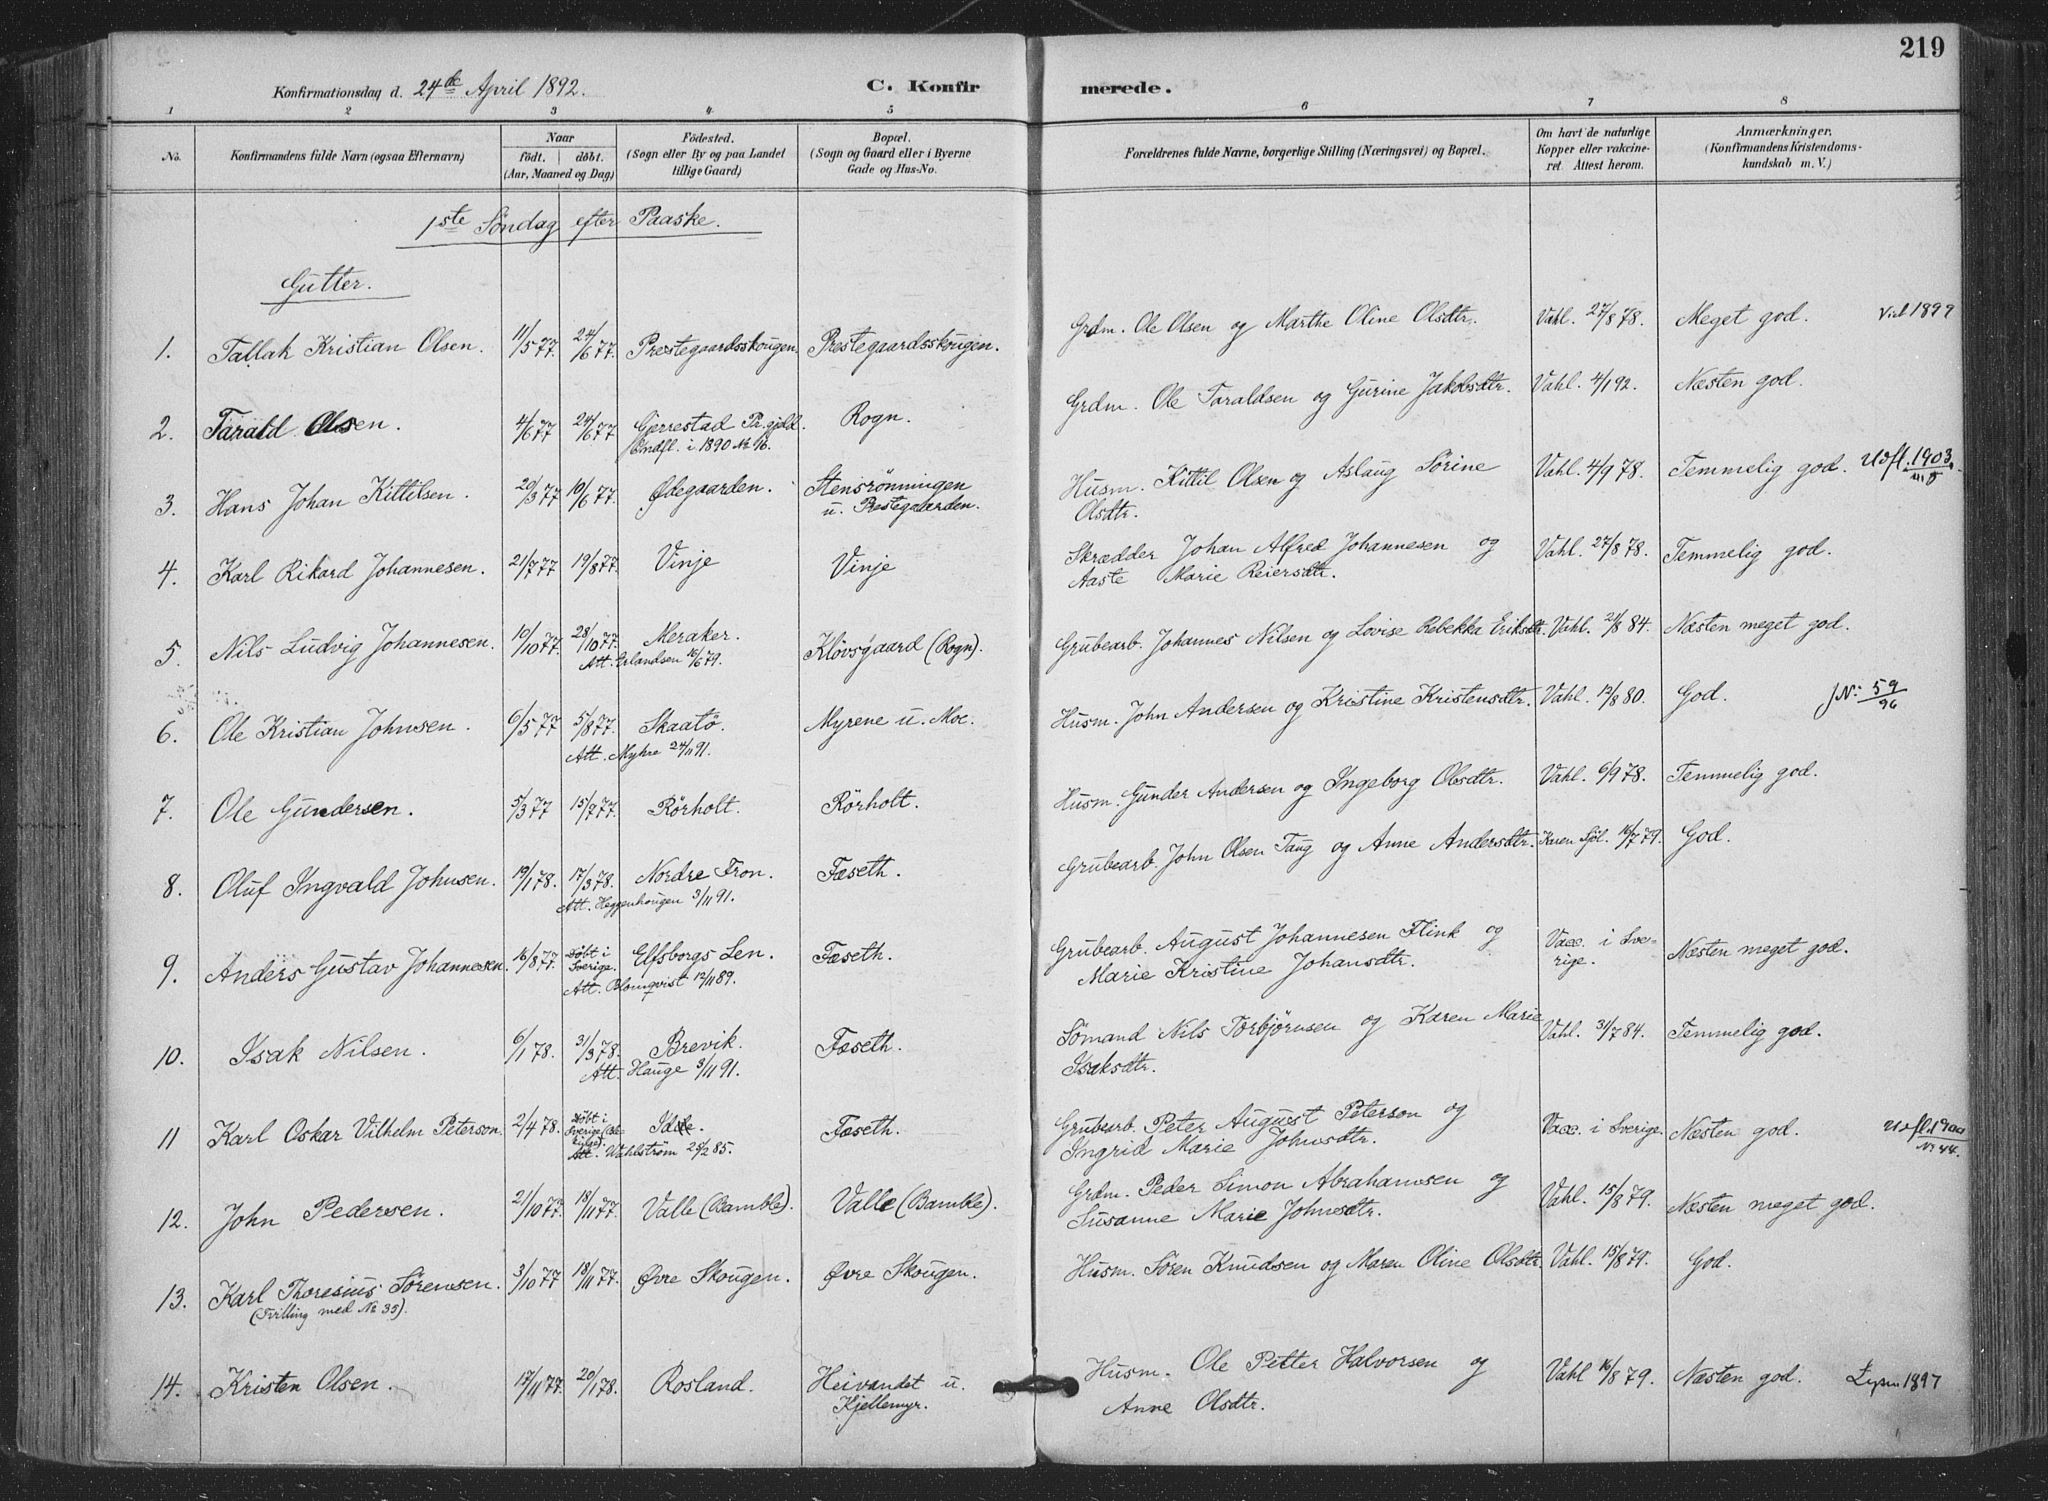 219
Konfirmationsdag d. 24de April 1892.
C. Konfirmerede.
1 2 3 4 5 6 7 8
No.
Konfirmandens fulde Navn (ogsaa Efternavn)
Naar
födt. döbt.
(Aar, Maaned og Dag)
Födested.
(Sogn eller By og paa Landet
tillige Gaard)
Bopæl.
(Sogn og Gaard eller i Byerne
Gade og Hus-No.
Forældrenes fulde Navne, borgerlige Stilling (Næringsvei) og Bopæl.
Om havt de naturlige
Kopper eller vakcine-
ret. Attest herom.
Anmærkninger.
(Konfirmandens Kristendoms-
kundskab m. V.)
1ste Söndag efter Paaske.
Gutter.
1. Tallak Kristian Olsen. 11/5 77. 24/6 77. Prestegaardsskougen. Prestegaardsskougen. Grdm. Ole Olsen og Marthe Oline Olsdtr. Vahl. 27/8 78. Meget god. Viel 1899
2. Tarald Olsen. 4/6 77 24/6 77. Gjerrestad Pr.gjeld. Rogn. Grdm. Ole Taraldsen og Gurine Jakobsdtr. Vahl. 4/1 92. Næsten god.
Indfl. i 1890 No 96.
3. Hans Johan Kittilsen. 20/3 77 10/6 77. Ødegaarden. Stensrönningen Husm. Kittil Olsen og Aslaug Sörine Vahl. 4/9 78. Temmelig god. Udfl. 1903.
u. Prestegaarden. Olsdtr.
4. Karl Rikard Johannesen. 21/7 77 19/8 77. Vinje Vinje Skrædder Johan Alfred Johannesen og Vahl. 27/8 78. Temmelig god.
Aaste Marie Reiersdtr.
5. Nils Ludvig Johannesen. 10/10 77. 28/10 77. Meraker. Klövsgaard (Rogn). Grubearb. Johannes Nilsen og Lovise Rebekka Eriksdtr. Vahl. 21/8 84. Næsten meget god.
Att. Erlandsen 16/6 79.
6. Ole Kristian Johnsen. 6/5 77 5/8 77. Skaatö. Myrene u. Moe. Husm. John Andersen og Kristine Kristensdtr. Vahl. 13/8 80. God. JN: 59/96
Att. Myhre 24/11 91.
7. Ole Gundersen. 5/3 77 15/7 77. Rörholt. Rörholt. Husm. Gunder Andersen og Ingeborg Olsdtr. Vahl. 6/9 78. Temmelig god.
8. Oluf Ingvald Johnsen. 19/1 78. 17/3 78. Nordre Fron. Fæseth. Grubearb. John Olsen Taug og Anne Andersdtr. Karen Sjöl. 16/7 79. God.
Att. Heggenhougen 3/11 91.
9. Anders Gustav Johannesen 16/8 77. Döbt i Sverige. Elfsborgs Len. Fæseth. Grubearb. August Johannesen Flink og Vacc. i Sve- Næsten meget god.
Att. Blomqvist 12/11 89. Marie Kristine Johansdtr. rige.
10. Isak Nilsen. 6/1 78. 31/3 78. Brevik. Fæseth. Sömand Nils Torbjörnsen og Karen Marie Vahl. 31/7 84. Temmelig god.
Att. Hauge 3/11 91. Isaksdtr.
11 Karl Oskar Vilhelm Peterson. 2/4 78. Döbt i Fæseth. Grubearb. Peter August Peterson og Vacc. i Sverige. Næsten god. Udfl. 1900
Att. Wahlström 28/2 85. Ingrid Marie Johnsdtr. No 44.
12. John Pedersen. 21/10 77. 18/11 77. Valle (Bamble). Valle (Bamble). Grdm. Peder Simon Abrahamsen og Vahl. 15/8 79. Næsten meget god.
Susanne Marie Johnsdtr.
13. Karl Thoresius Sörensen. 3/10 77 18/11 77. Øvre Skougen. Øvre Skougen. Husm. Sören Knudsen og Maren Oline Olsdtr. Vahl. 15/8 79. God.
(Tvilling med No 33).
14. Kristen Olsen. 17/11 77. 20/1 78. Rosland. Heivandet u. Husm. Ole Petter Halvorsen og Vahl 16/8 79. Næsten god. 1897
Kjellemyr. Anne Olsdtr.